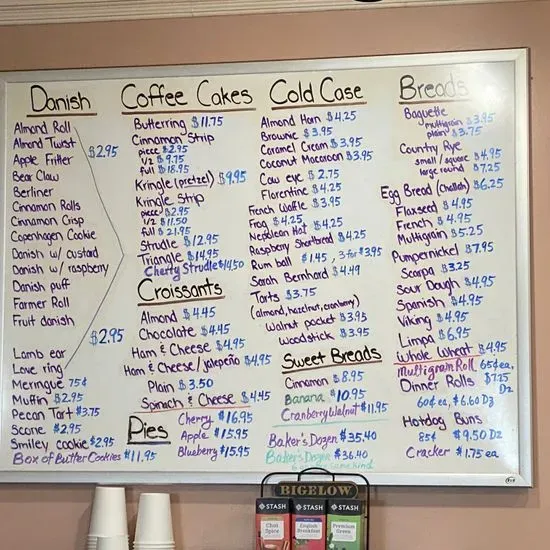 Danish
Almond Roll
Almond Twist
Apple Fritter
$2.95
Bear Claw
Berliner
Cinnamon Rolls
Cinnamon Crisp
Copenhagen Cookie
Danish w/ custard
Danish w/ raspberry
Danish puff
Farmer Roll
Fruit danish
$2.95
Lamb ear
Love ring
Meringue 75¢
Muffin $2.95
Pecan Tart $3.75
Scone $2.95
Smiley cookie $2.95
Box of Butter Cookies $11.95
Coffee Cakes
Butterring $11.75
Cinnamon Strip
piece $2.95
1/2 $9.75
full $18.95
Kringle (pretzel) $9.95
Kringle Strip
piece $2.95
1/2 $11.50
full $21.95
Strudle $12.95
Triangle $14.95
Cherry Strudle $14.50
Croissants
Almond $4.45
Chocolate $4.45
Ham & Cheese $4.95
Ham & Cheese/jalepeño $4.95
Plain $3.50
Spinach & Cheese $4.45
Pies
Cherry $16.95
Apple $15.95
Blueberry $15.95
Cold Case
Almond Horn $4.25
Brownie $3.95
Caramel Cream $3.95
Coconut Macaroon $3.95
Cow eye $2.75
Florentine $4.25
French Waffle $3.95
Frog $4.25
Nepolean Hat $4.25
Raspberry Shortbread $4.25
Rum ball $1.45, 3 for $3.95
Sarah Bernhard $4.49
Tarts $3.75
(almond, hazelnut, cranberry)
Walnut pocket $3.95
Woodstick $3.95
Sweet Breads
Cinnamon $8.95
Banana $10.95
Cranberry Walnut $11.95
Baker's Dozen $35.40
Baker's Dozen $36.40
Breads
Baguette
multigrain $3.95
plain $3.75
County Rye
small/square $4.95
large round $7.25
Egg Bread (challah) $6.25
Flaxseed $4.95
French $4.95
Multigrain $5.25
Pumpernickel $7.95
Scarpa $3.25
Sour Dough $4.95
Spanish $4.95
Viking $4.95
Limpa $6.95
Whole Wheat $4.95
Multigrain Roll 65¢ ea,
$7.25 Dz
Dinner Rolls
60¢ ea, $6.60 Dz
Hotdog Buns
85¢ $9.50 Dz
Cracker $1.75 ea
BIGELOW
STASH
Chai
Spice
STASH
English
Breakfast
STASH
Premium
Green